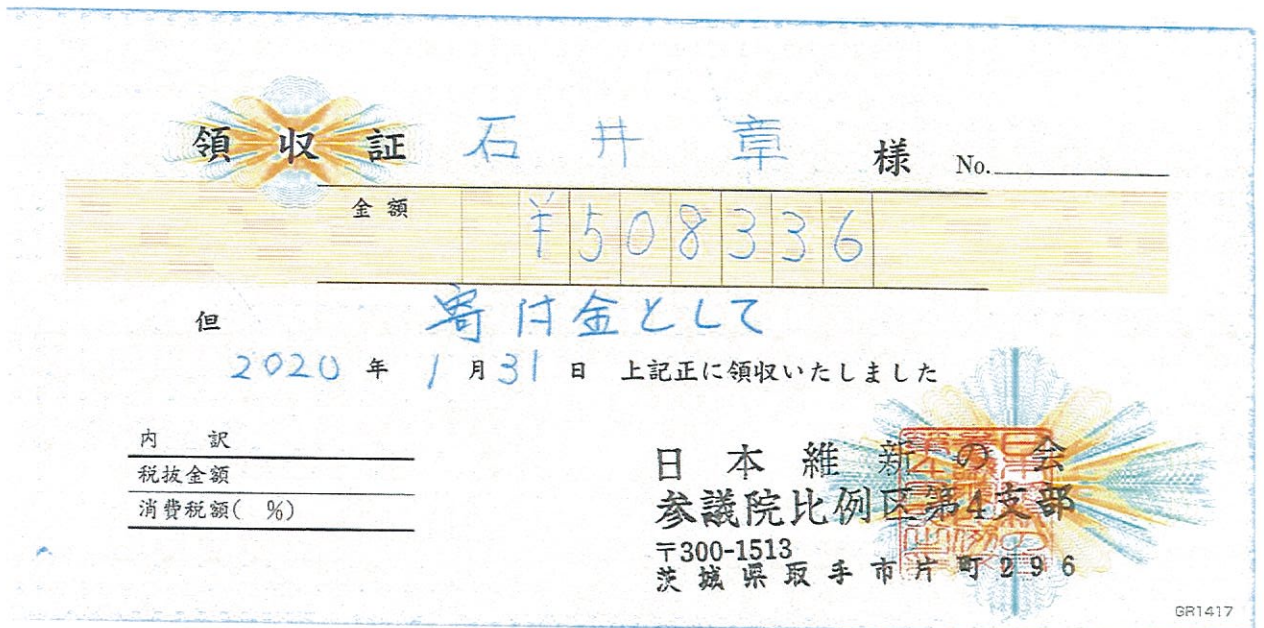 領収証 石井章 様 No.
金額 ¥508336
但 寄付金として
2020年1月31日 上記正に領収いたしました
内訳
税抜金額
消費税額( %)
日本維新の会
参議院比例区第4支部
〒300-1513
茨城県取手市片町296
GR1417